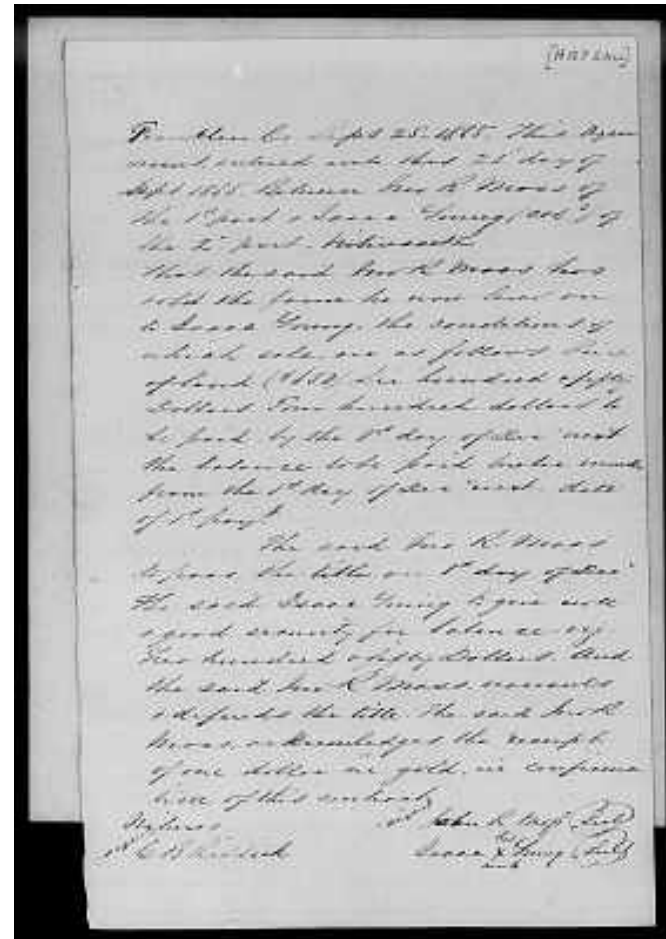 [HARSHAW]
Franklin Co Sept 25. 1865. This Agree
ment entered into this 25 day of
Sept 1865. Between Jno R Moss of
the 1st part & Isaac Young (col) of
the 2d part. Witnesseth
that the said Jno R Moss has
sold the farm he now lives on
to Isaac Young. the conditions of
which sale are as follows
of land ($650) Six hundred & fifty
Dollars Four hundred dollars to
be paid by the 1st day of Dec next
the balance to be paid twelve months
from the 1st day of Dec next. date
of 1st payt.
The said Jno R. Moss
the title on 1st day of Dec
The said Isaac Young to give note
& good security for balance say
Two hundred & fifty Dollars. And
the said Jno R Moss warrants
& defends the title. The said Jno R
Moss. acknowledges the receipt
of one dollar in gold. in confirma
tion of this contract
Witness John R Moss Seal
C B his
Isaac X Young Seal
mark